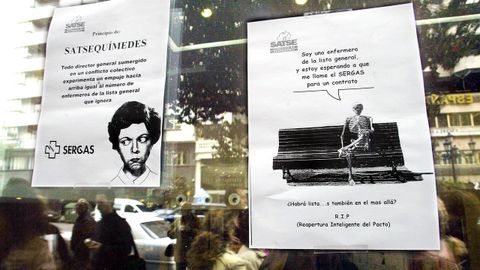 SATSE
Principio de:
SATSEQUÍMEDES
Todo director general sumergido
en un conflicto colectivo
experimenta un empuje hacia
arriba igual al número de
enfermeros de la lista general
que ignora
SERGAS
SATSE
Soy una enfermera
de la lista general,
y estoy esperando a que
me llame el SERGAS
para un contrato
¿Habrá lista...s también en el mas allá?
R.I.P
(Reapertura Inteligente del Pacto)